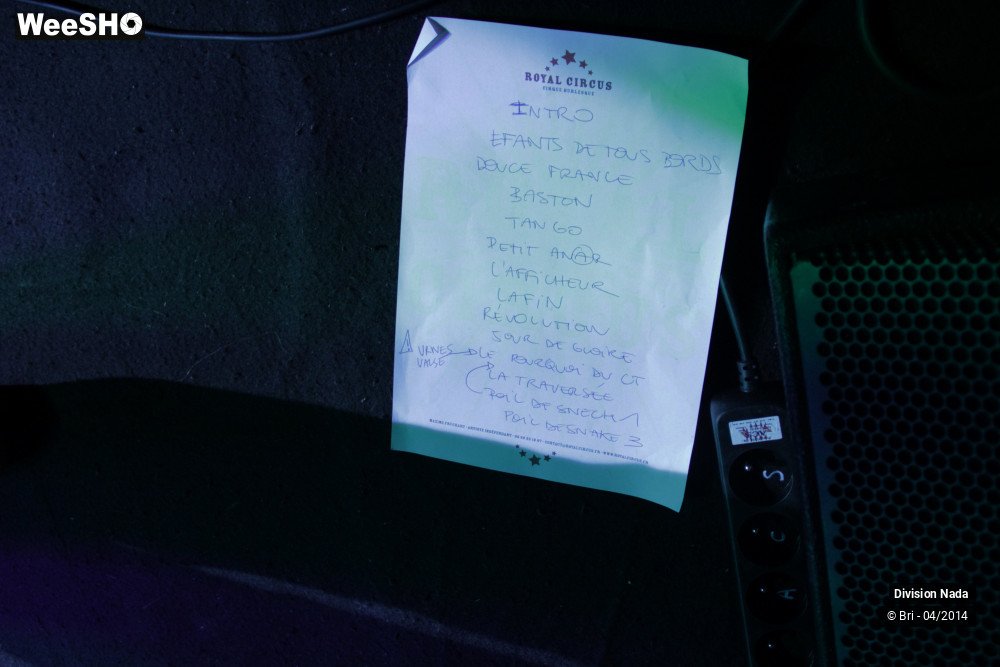 WeeSHO
ROYAL CIRCUS
CIRQUE BURLESQUE
INTRO
EFANTS DE TOUS BORDS
DOUCE FRANCE
BASTON
TANGO
PETIT ANAR
L'AFFICHEUR
LAFIN
RÉVOLUTION
JOUR DE GLOIRE
URNES LE POURQUOI DU CT
VALSE
LA TRAVERSÉE
POIL DE SNECH 1
POIL DE SNAKE 3
S
C
A
Division Nada
© Bri - 04/2014